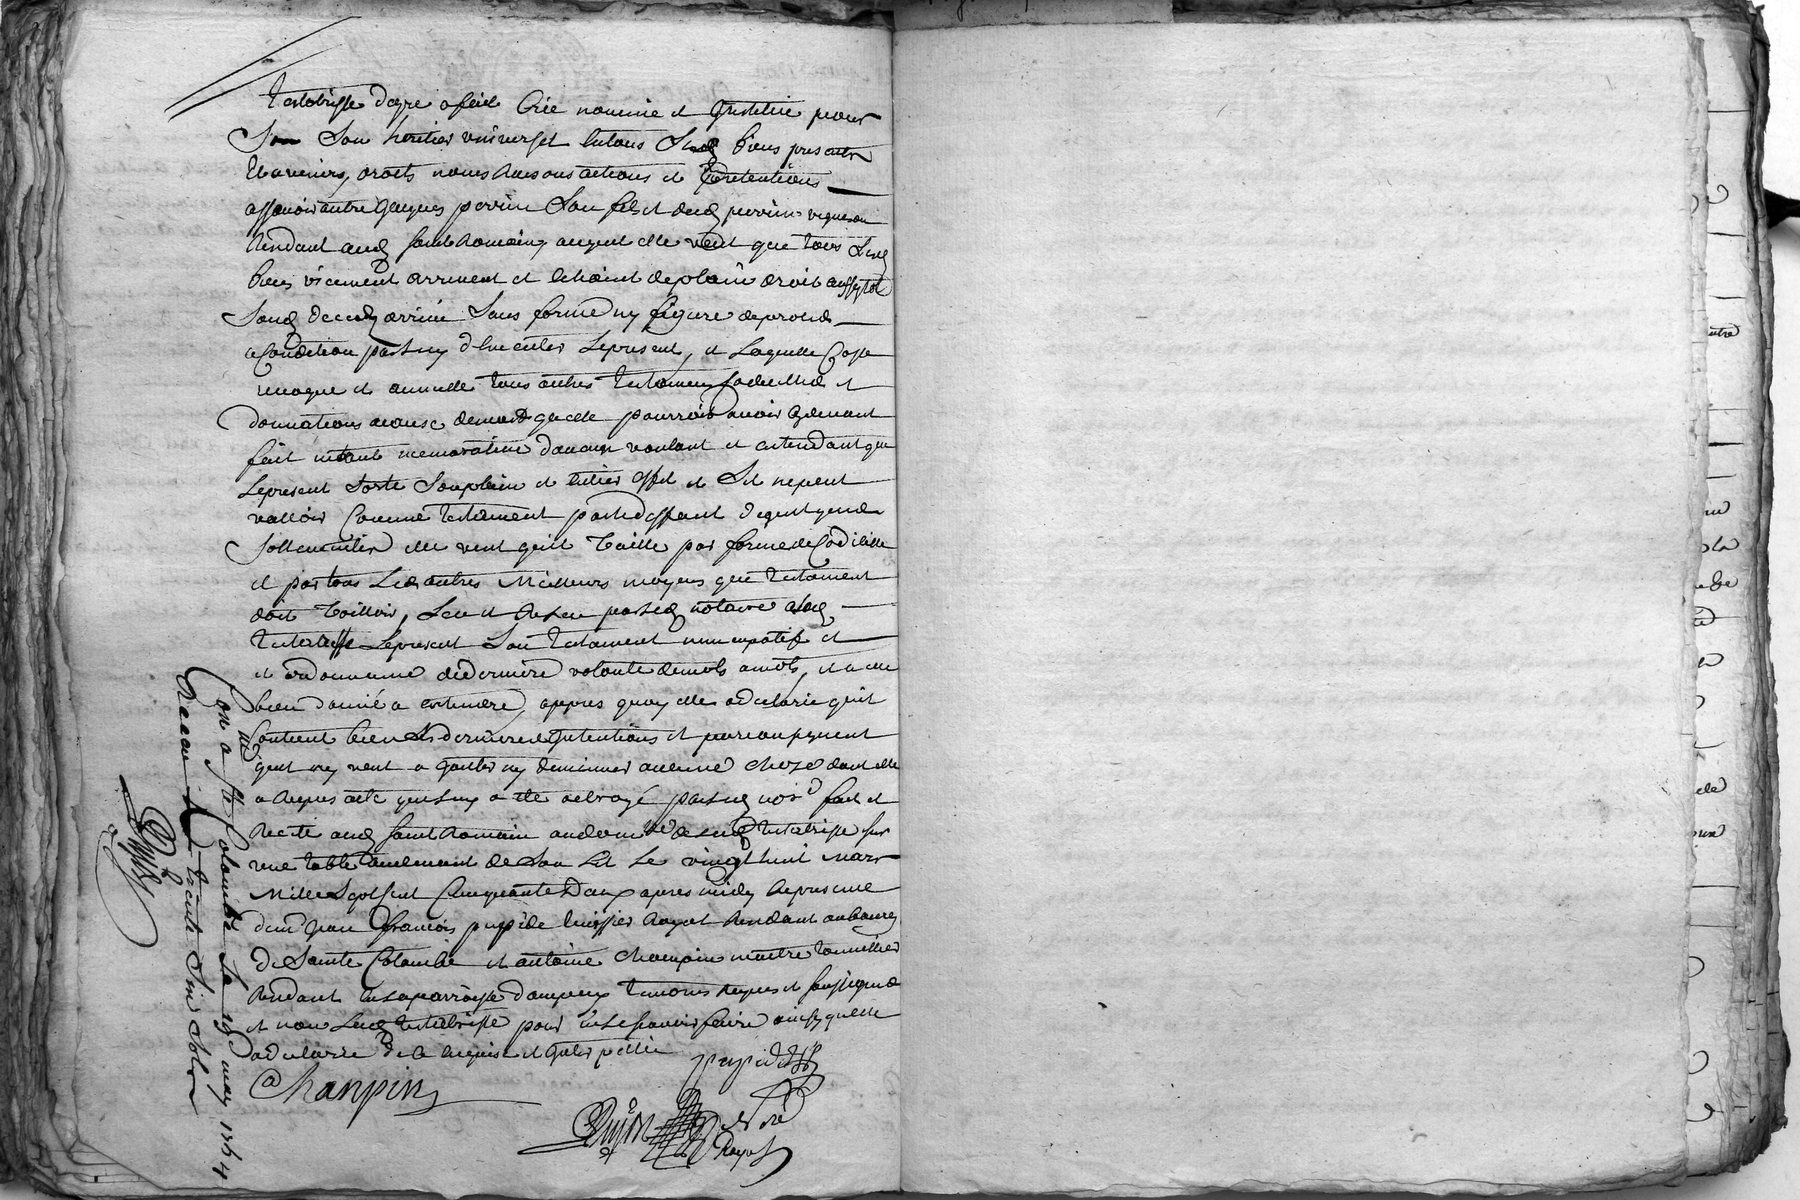 testatrisse de gre a fait Cree nomme et Institue pour
Son heritier universel en tous Ses biens presents
Et avenirs, droits noms Raisons actions et pretentions
assavoir autre Jacques perrin Son fils et dud perrin vigneron
Residant aud saint Romain auquel elle veut que tous Sesd
biens viennent arrivent et echoient de plain droit aussytot
Sond deces arrivé Sans forme ny figure de proces
a Condition par luy d'Executer Le present, et Laquelle Casse
revoque et annulle tous autres testamens Codicilles et
donnations a cause de mort qu'elle pourroit avoir Cy devant
fait voulant et entendant que
Le present Sorte Son plein et entier effet et S'il ne peut
valloir Comme testament par deffaut de quelque
sollemnitée elle veut qu'il vaille par forme de Codicille
et par tous Les autres Meilleurs moyens que testament
doit valloir, Leu et Releu par led notaire a lad
testatrisse Le present Son testament nuncupatif et
et ordonnance de derniere volonté de mots a mots, et a elle
bien donné a entendre, apprès quoy elle a declaré qu'il
Contient bien Ses dernieres Intentions et
qu'il n'y veut a jouter ny diminuer aucune chose dont elle
a Requis acte qui luy a eté octroyé par led no.re fait et
Recité aud saint Romain au domicille de lad testatrisse sur
une table au devant de Son Lit Le vingt huit mars
Mille Sept Cent Cinquante Deux apres midy En presence
de Jean François pupide huissier Royal Residant au bourg
De Sainte Colombe et antoine Champin maitre tonnellier
Residant en la parroisse d'ampuy temoins Requis et soussignés
et non Lad testatrisse pour ne le sçavoir faire ainsy quelle
a declaré de ce Enquise et Interpellée
Champin
pupide
No.re
Royal
Con.llé a S.te Colombe Le 19 may 1764
Receu trente Six Sols